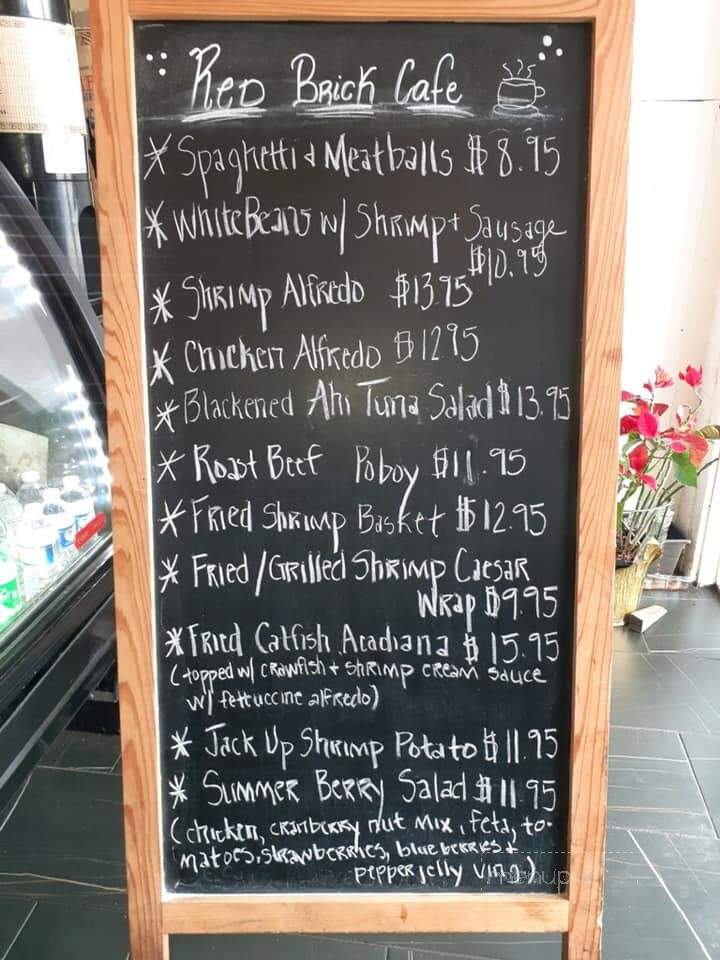 Red Brick Cafe
* Spaghetti & Meatballs $8.95
* White Beans w/ Shrimp + Sausage
$10.95
* Shrimp Alfredo $13.95
* Chicken Alfredo $12.95
* Blackened Ahi Tuna Salad $13.95
* Roast Beef Poboy $11.95
* Fried Shrimp Basket $12.95
* Fried/Grilled Shrimp Caesar
Wrap $9.95
* Fried Catfish Acadiana $15.95
(topped w/ crawfish + shrimp cream sauce
w/ fettuccine alfredo)
* Jack Up Shrimp Potato $11.95
* Summer Berry Salad $11.95
(chicken, cranberry nut mix, feta, to-
matoes, strawberries, blueberries +
pepper jelly ving.)